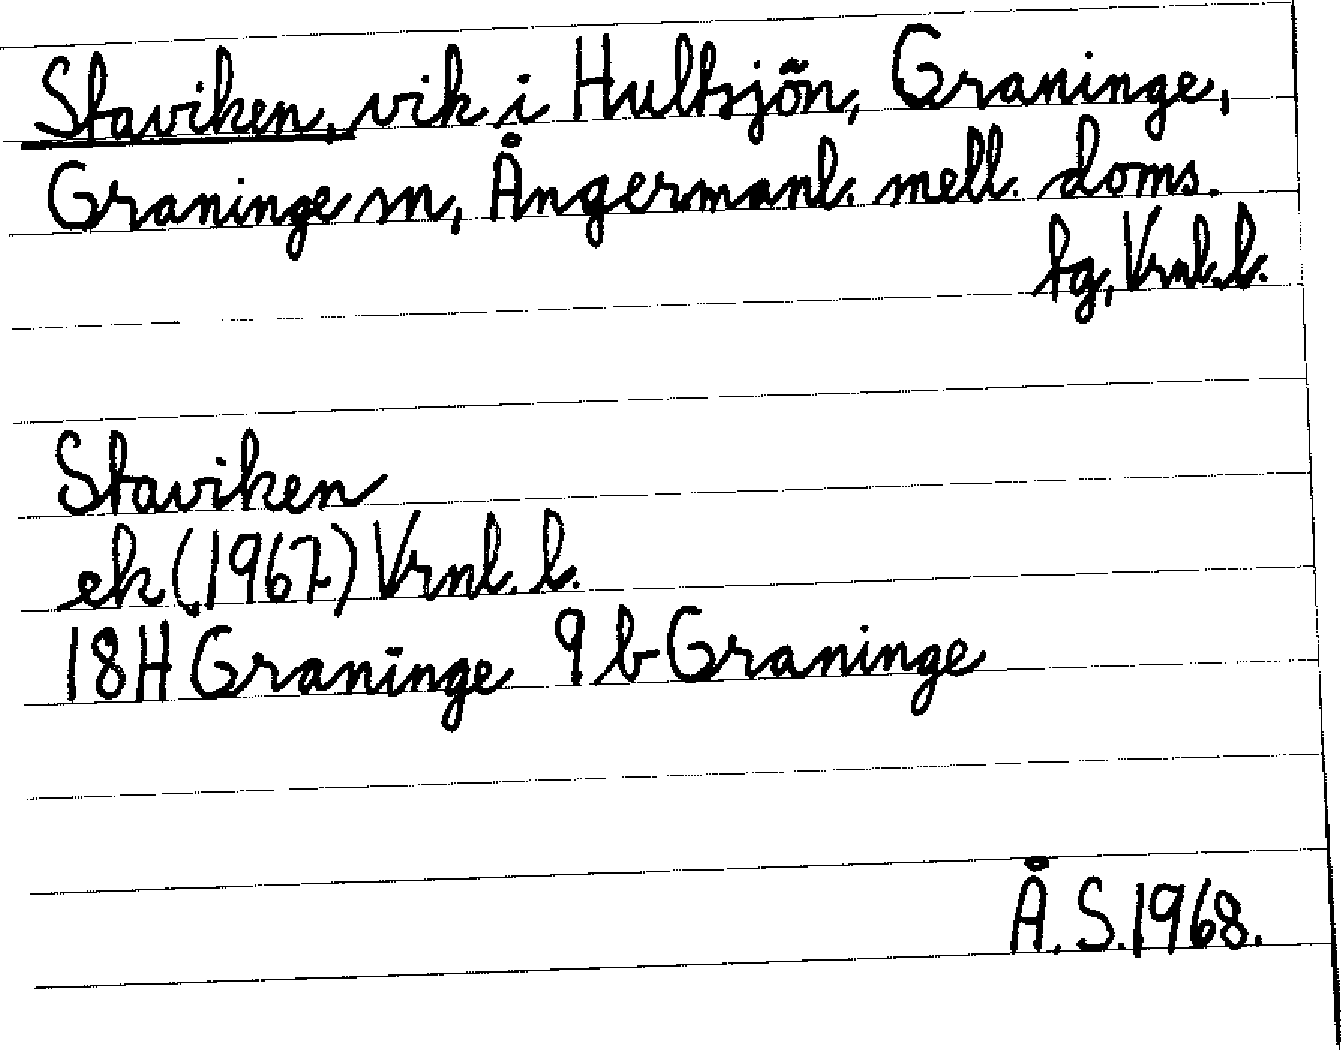 Staviken, vik i Hultsjön, Graninge,
Graninge sn, Ångermanl. mell. doms.
tg, Vrnl. l.
Staviken
ek (1967) Vrnl. l.
18H Graninge 9 b Graninge
Å. S. 1968.